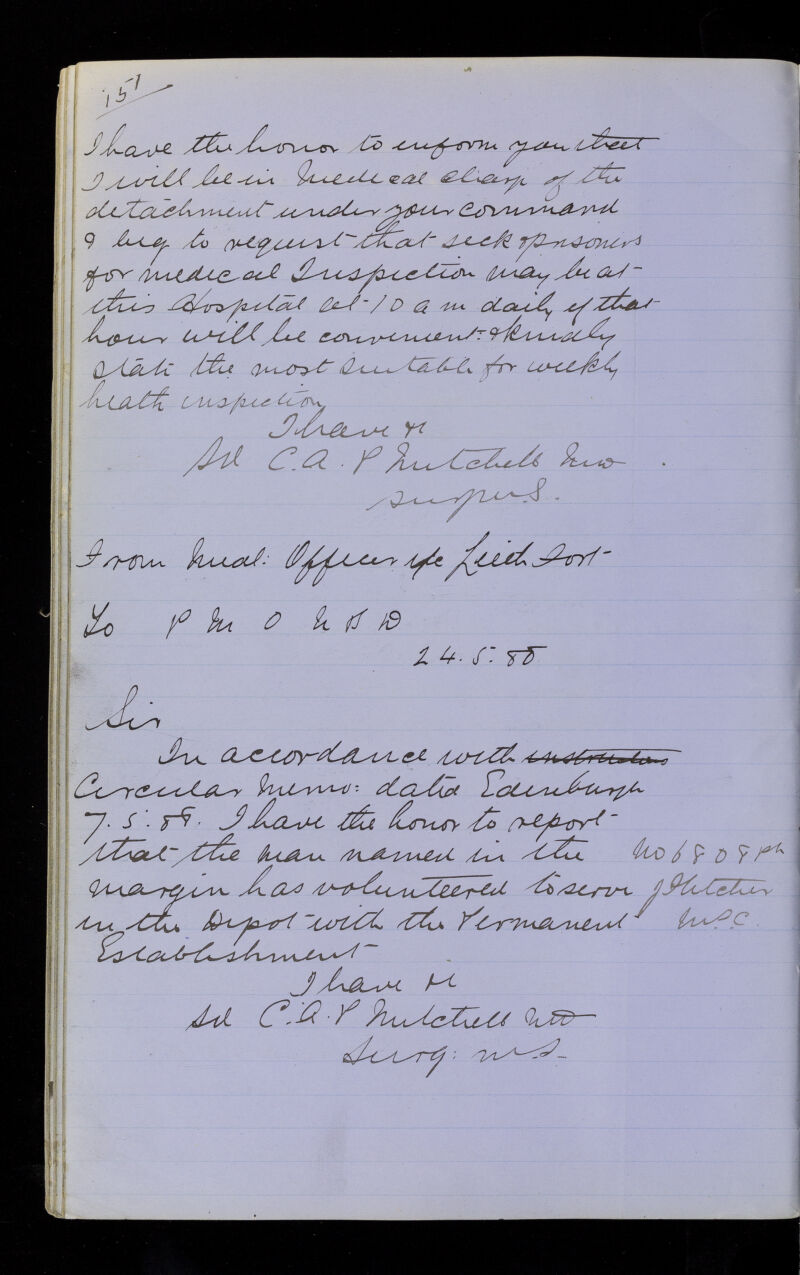 151
I have the honor to inform you that
I will be in Medical charge of the
detachment under your command
& beg to request that sick & prisoners
for medical Inspection may be at
this Hospital at 10 a m daily if that
hour will be convenient & kindly
state the most suitable for weekly
heath inspection
I have &c
Sd C. A. P Mitchell MD
From Medl: Officer i/c Leith Fort
To P M O N B D
24. 5. 88
Sir
In accordance with instructions
Circular Memo: dated Edinburgh
7. 5. 88. I have the honor to report
that the man named in the No 6808 Pte
margin has volunteered to serve J Fletcher
in the Depot with the Permanent M.S.C.
Establishment
I have &c
Sd C. A. P Mitchell MD
Surg: M.S.